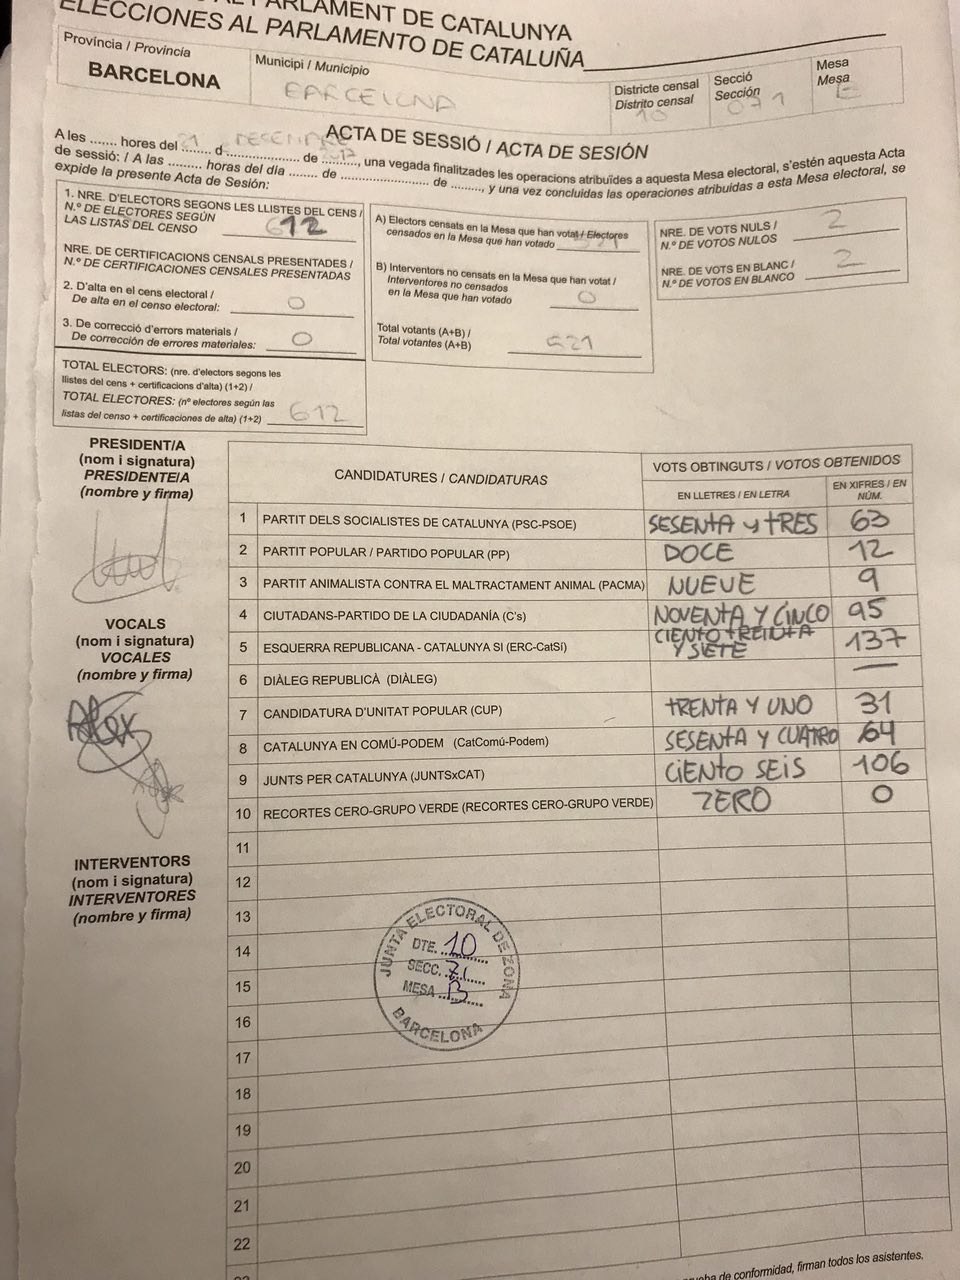 PARLAMENT DE CATALUNYA
ELECCIONES AL PARLAMENTO DE CATALUÑA
Província / Provincia
BARCELONA
Municipi / Municipio
BARCELONA
Districte censal
Distrito censal
10
Secció
Sección
071
Mesa
Mesa
ACTA DE SESSIÓ / ACTA DE SESIÓN
A les ....... hores del 21 d ................ de 2017, una vegada finalitzades les operacions atribuïdes a aquesta Mesa electoral, s'estén aquesta Acta
de sessió: / A las ......... horas del día ........ de ........................ de ........., y una vez concluidas las operaciones atribuidas a esta Mesa electoral, se
expide la presente Acta de Sesión:
1. NRE. D'ELECTORS SEGONS LES LLISTES DEL CENS /
N.º DE ELECTORES SEGÚN
LAS LISTAS DEL CENSO 612
NRE. DE CERTIFICACIONS CENSALS PRESENTADES /
N.º DE CERTIFICACIONES CENSALES PRESENTADAS
2. D'alta en el cens electoral /
De alta en el censo electoral: 0
3. De correcció d'errors materials /
De corrección de errores materiales: 0
TOTAL ELECTORS: (nre. d'electors segons les
llistes del cens + certificacions d'alta) (1+2) /
TOTAL ELECTORES: (nº electores según las
listas del censo + certificaciones de alta) (1+2) 612
A) Electors censats en la Mesa que han votat / Electores
censados en la Mesa que han votado
B) Interventors no censats en la Mesa que han votat /
Interventores no censados
en la Mesa que han votado 0
Total votants (A+B) /
Total votantes (A+B) 521
NRE. DE VOTS NULS /
N.º DE VOTOS NULOS 2
NRE. DE VOTS EN BLANC /
N.º DE VOTOS EN BLANCO 2
PRESIDENT/A
(nom i signatura)
PRESIDENTE/A
(nombre y firma)
VOCALS
(nom i signatura)
VOCALES
(nombre y firma)
Alex
INTERVENTORS
(nom i signatura)
INTERVENTORES
(nombre y firma)
CANDIDATURES / CANDIDATURAS
VOTS OBTINGUTS / VOTOS OBTENIDOS
EN LLETRES / EN LETRA
EN XIFRES / EN NÚM.
1 PARTIT DELS SOCIALISTES DE CATALUNYA (PSC-PSOE) SESENTA Y TRES 63
2 PARTIT POPULAR / PARTIDO POPULAR (PP) DOCE 12
3 PARTIT ANIMALISTA CONTRA EL MALTRACTAMENT ANIMAL (PACMA) NUEVE 9
4 CIUTADANS-PARTIDO DE LA CIUDADANÍA (C's) NOVENTA Y CINCO 95
5 ESQUERRA REPUBLICANA - CATALUNYA SI (ERC-CatSí) CIENTO TREINTA Y SIETE 137
6 DIÀLEG REPUBLICÀ (DIÀLEG) —
7 CANDIDATURA D'UNITAT POPULAR (CUP) TRENTA Y UNO 31
8 CATALUNYA EN COMÚ-PODEM (CatComú-Podem) SESENTA Y CUATRO 64
9 JUNTS PER CATALUNYA (JUNTSxCAT) CIENTO SEIS 106
10 RECORTES CERO-GRUPO VERDE (RECORTES CERO-GRUPO VERDE) ZERO 0
11
12
13
14
15
16
17
18
19
20
21
22
23
JUNTA ELECTORAL DE ZONA
DTE. 10
SECC. 71
MESA B
BARCELONA
de conformidad, firman todos los asistentes.